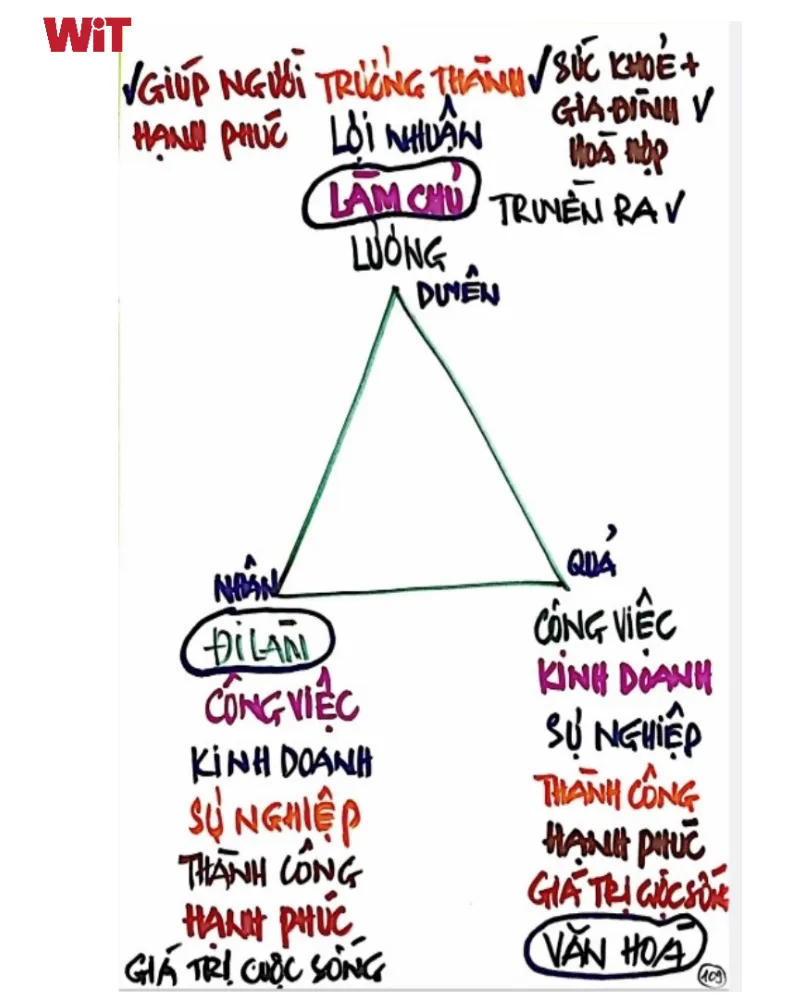 WiT
√GIÚP NGƯỜI TRƯỞNG THÀNH √SỨC KHOẺ +
HẠNH PHÚC LỢI NHUẬN GIA ĐÌNH √
HOÀ HỢP
LÀM CHỦ TRUYỀN RA √
LƯƠNG
DUYÊN
NHÂN QUẢ
ĐI LÀM CÔNG VIỆC
CÔNG VIỆC KINH DOANH
KINH DOANH SỰ NGHIỆP
SỰ NGHIỆP THÀNH CÔNG
THÀNH CÔNG HẠNH PHÚC
HẠNH PHÚC GIÁ TRỊ CUỘC SỐNG
GIÁ TRỊ CUỘC SỐNG VĂN HOÁ
109